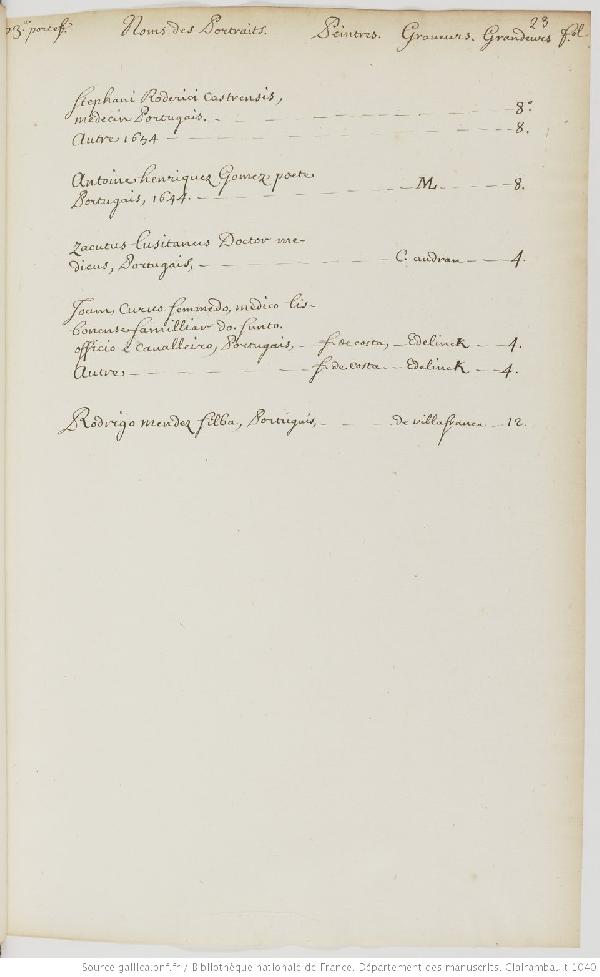 23
23.e portef. Noms des Portraits. Peintres. Graveurs. Grandeurs fol.
Stephani Roderici Castrensis,
medecin Portugais. 8.º
Autre 1634 8.
Antoine henriquez Gomez poete
Portugais, 1644. M. 8.
Zacutus Lusitanus Doctor me-
dicus, Portugais, C. audran 4.
Joam Curvo semmedo, medico lis-
bonense familliar do. santo.
officio e Cavalleiro, Portugais, f. de costa, Edelinck 4.
Autre, f. de costa Edelinck 4.
Rodrigo mendez silba, Portugais, de villafranca 12.
Source gallica.bnf.fr / Bibliothèque nationale de France. Département des manuscrits. Clairambault 1040